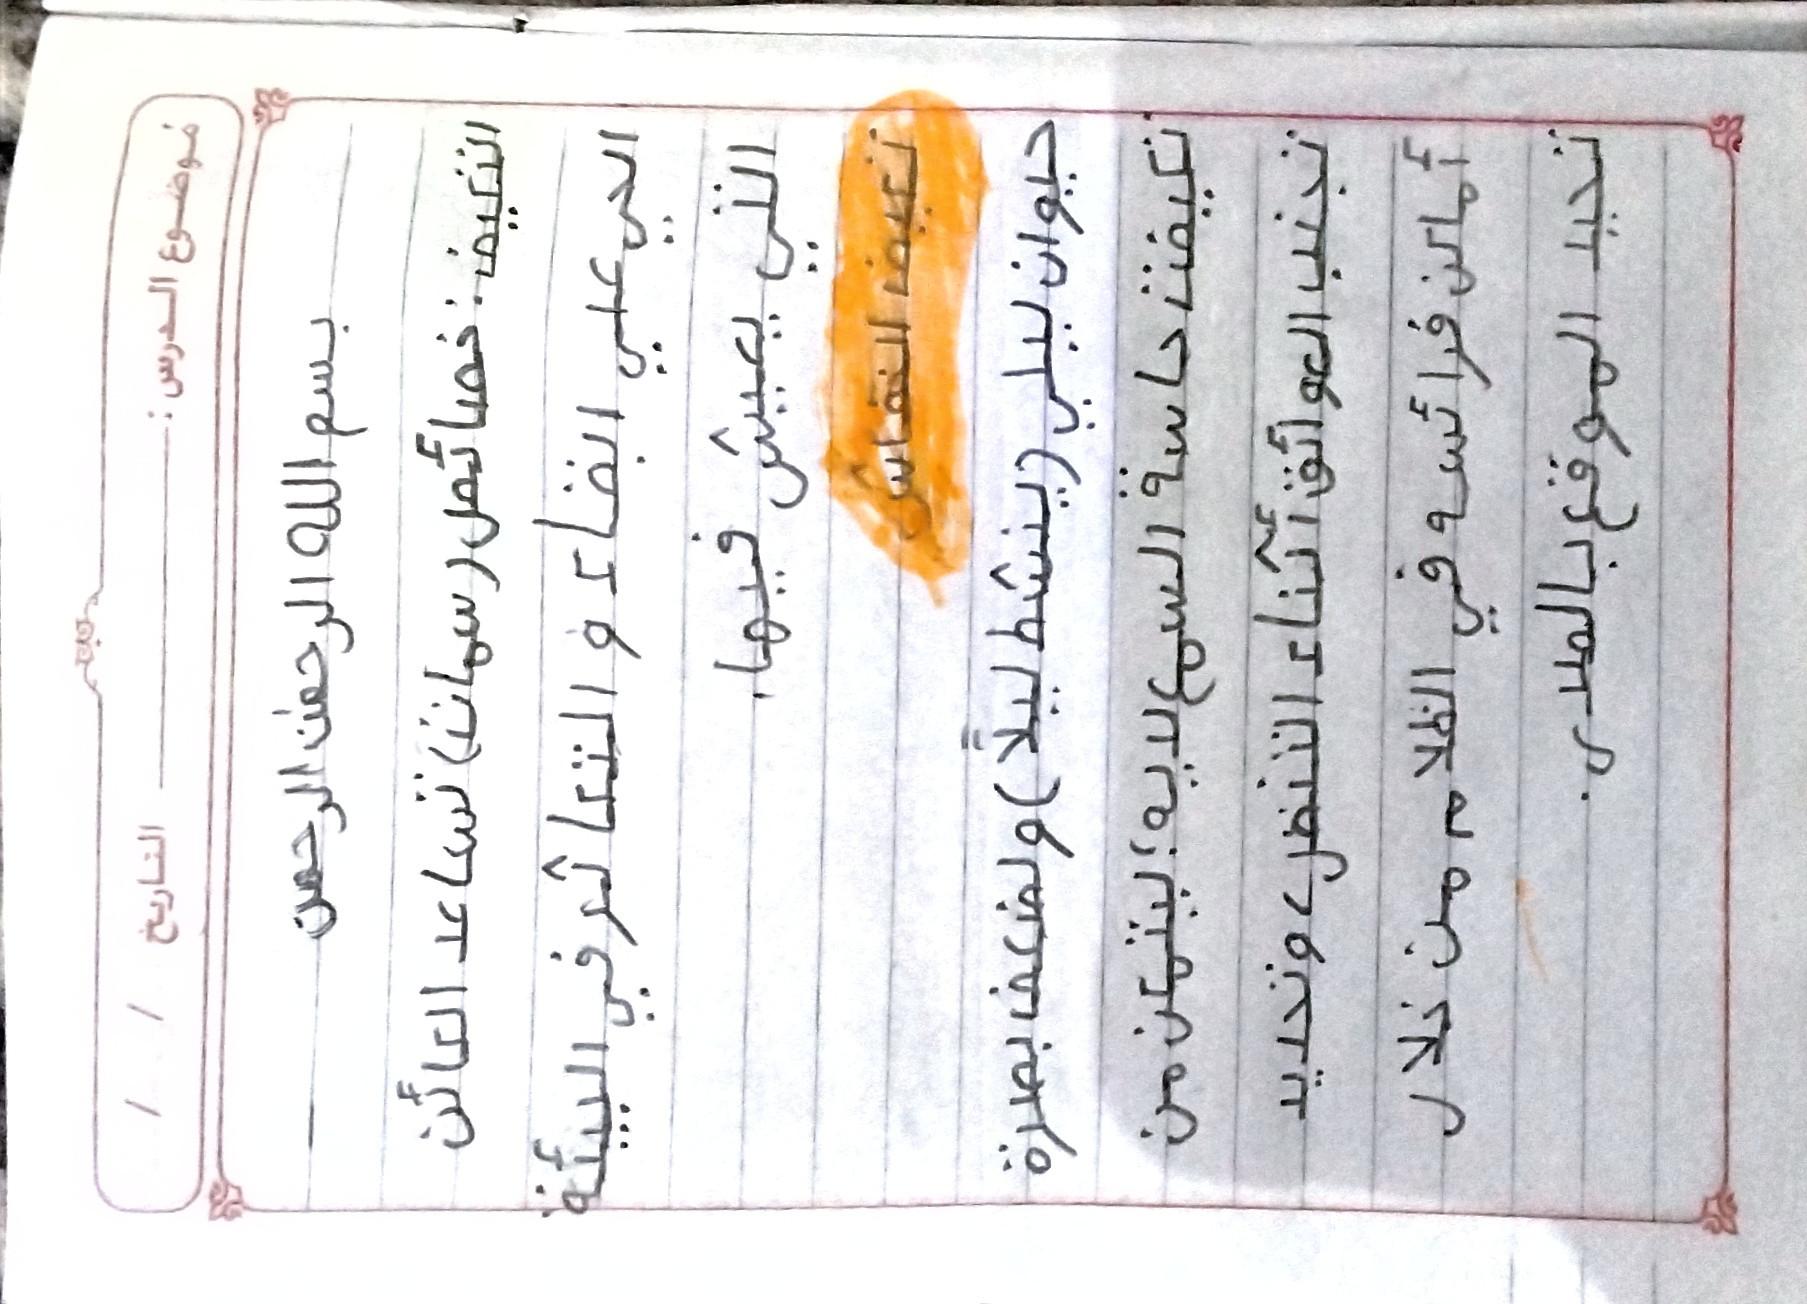 موضوع الدرس: التاريخ / /
بسم الله الرحمن الرحمن
التكيف: خصائص (سمات) تساعد الكائن
الحي علي البقاء و التكاثر في البيئة
التي يعيش فيها.
تكيف الخفاش
حيوان ليلي (ينشط ليلاً) ولضعف بصرة
تكيفت حاسة السمع لديه؛ ليتمكن من
تجنب العوائق أثناء التنقل، وتحديد
أماكن فرائسه في الظلام من خلال
تحديد الموقع بالصدى.